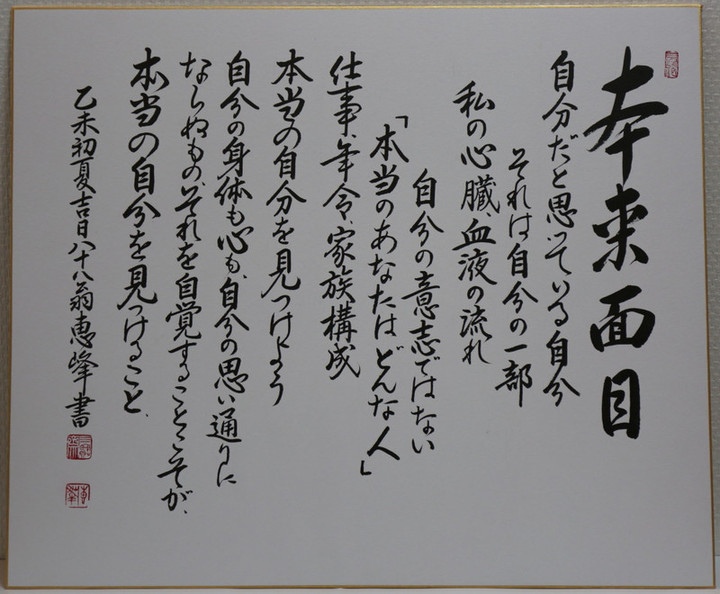 本来面目
自分だと思っている自分
それは自分の一部
私の心臓、血液の流れ
自分の意志ではない
「本当のあなたはどんな人」
仕事、年令、家族構成
本当の自分を見つけよう
自分の身体も心も、自分の思い通りに
ならぬもの、それを自覚することこそが、
本当の自分を見つけること、
乙未初夏吉日八十八翁恵峰書